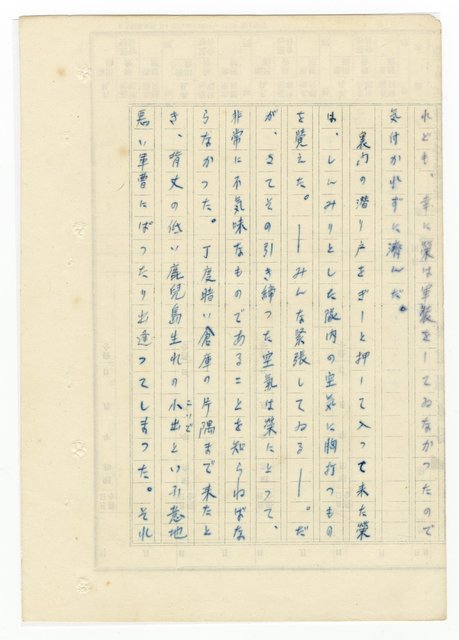 れども、幸に榮は軍装をしてゐなかつたので
気付かれずに濟んだ。
裏門の潜り戸をぎーと押して入つて来た榮
は、しんみりとした隊内の空気に胸打つもの
を覚えた。――みんな緊張してゐる――。だ
が、さてその引き緯つた空氣は榮にとつて、
非常に不気味なものであることを知らねばな
らなかつた。丁度暗い倉庫の片隅まで来たと
き、背丈の低い鹿児島生れの小出といふ意地
こいで
悪い軍曹にばつたり出逢つてしまつた。それ